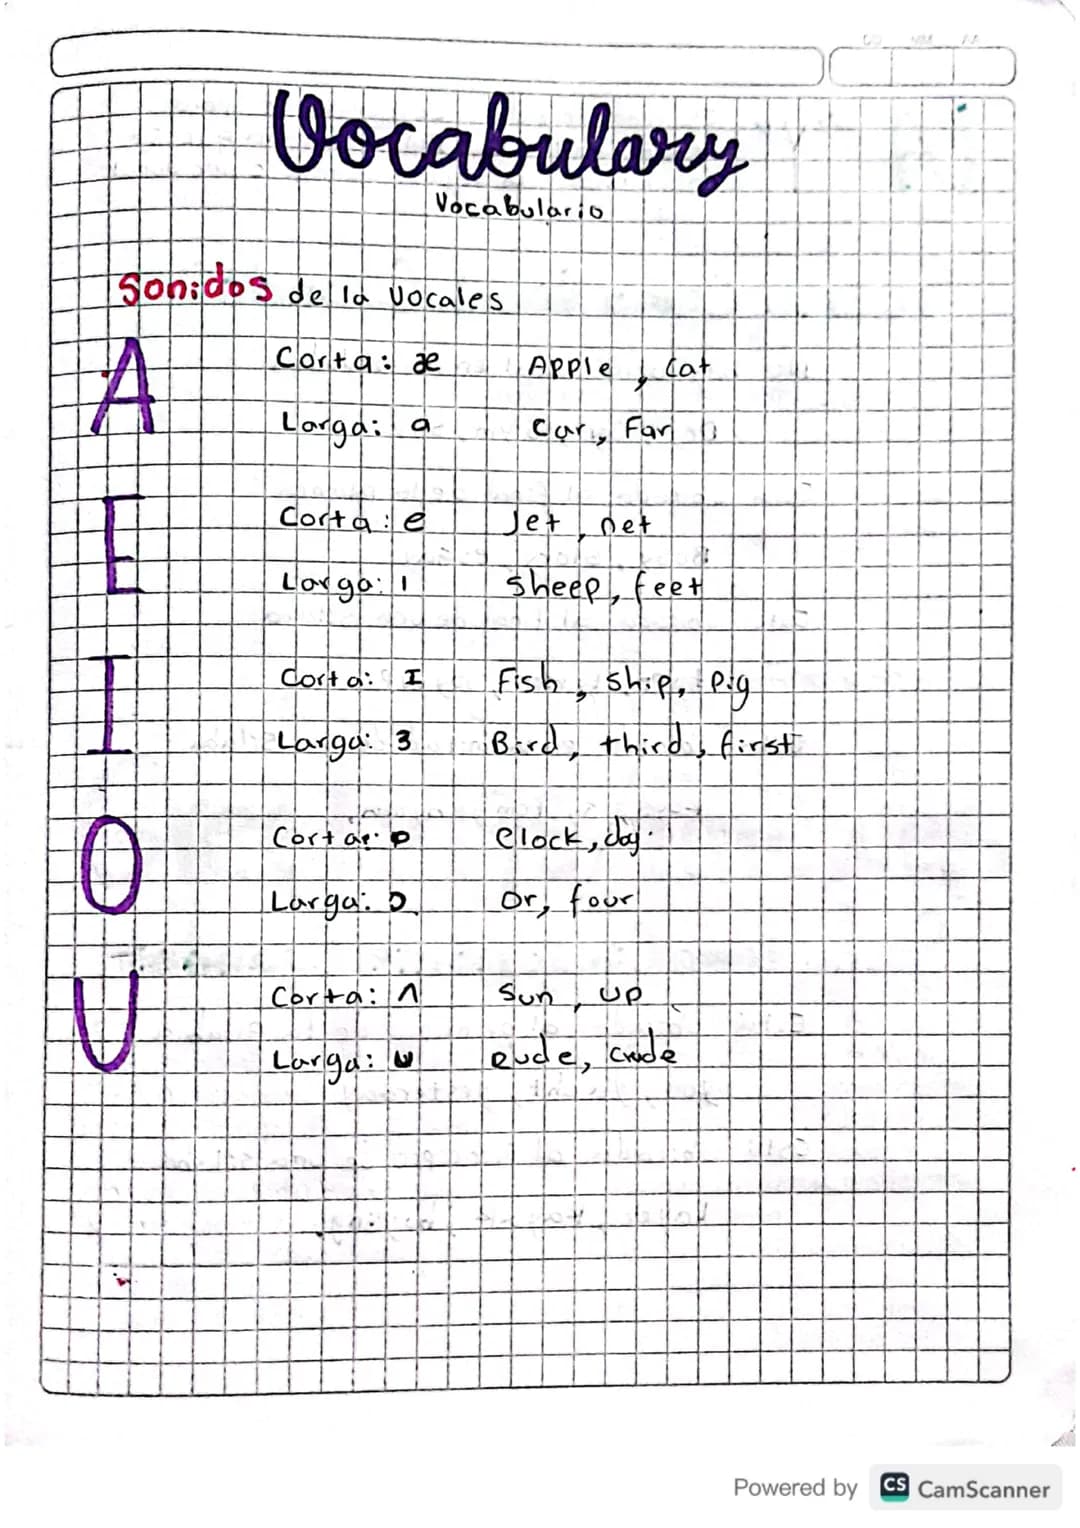 Vocabulary
Vocabulario
Sonidos de la Vocales
A
Corta: æ Apple, Cat
Larga: a Car, Far
E
Corta: e Jet, net
Larga: ı Sheep, feet
I
Corta: I Fish, Ship, Pig
Larga: 3 Bird, third, first
O
Corta: Clock,
Larga: Or, four
U
Corta: ʌ Sun, up
Larga: u crude
Powered by CS CamScanner